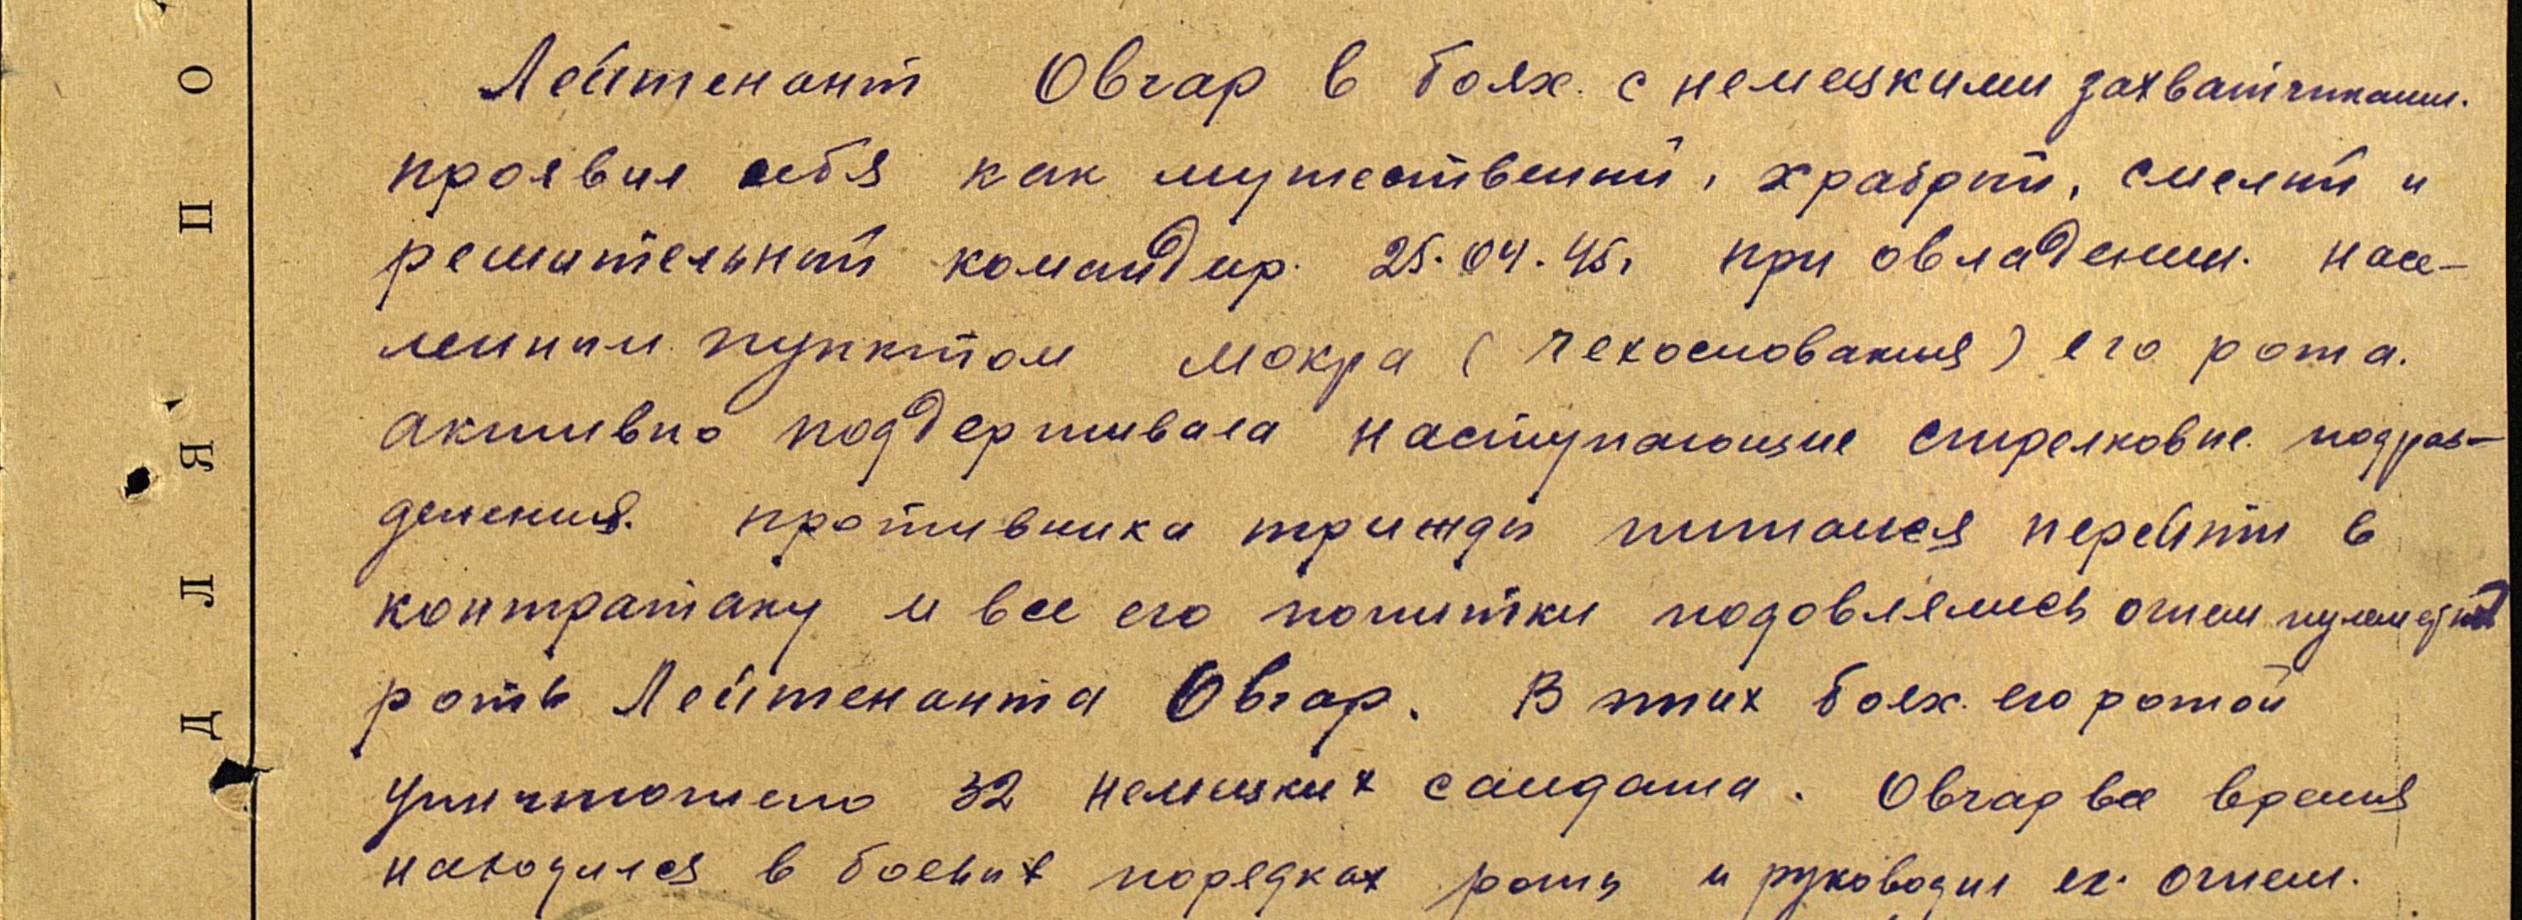 Лейтенант Овчар в боях с немецкими захватчиками.
проявил себя как мужественый, храбрый, смелый и
решительный командир. 25.04.45г при овладении. насе-
леным пунктом Мокра (Чехословакия) его рота.
активно поддерживала наступающие стрелковые подраз-
деления. противника трижды пытался перейти в
контратаку и все его попытки подовлялись огнем пулеметной
роты Лейтенанта Овчар. В этих боях его ротой
уничтожено 32 немецких солдата. Овчар все время
находился в боевых порядках роты и руководил ее огнем.
ДЛЯ ПО